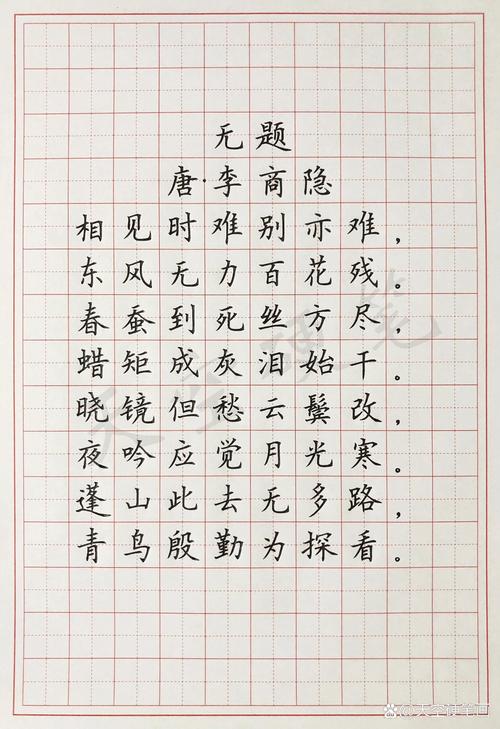 无题
唐·李商隐
相见时难别亦难，
东风无力百花残。
春蚕到死丝方尽，
蜡矩成灰泪始干。
晓镜但愁云鬓改，
夜吟应觉月光寒。
蓬山此去无多路，
青鸟殷勤为探看。
天空硬笔
@天空硬笔画